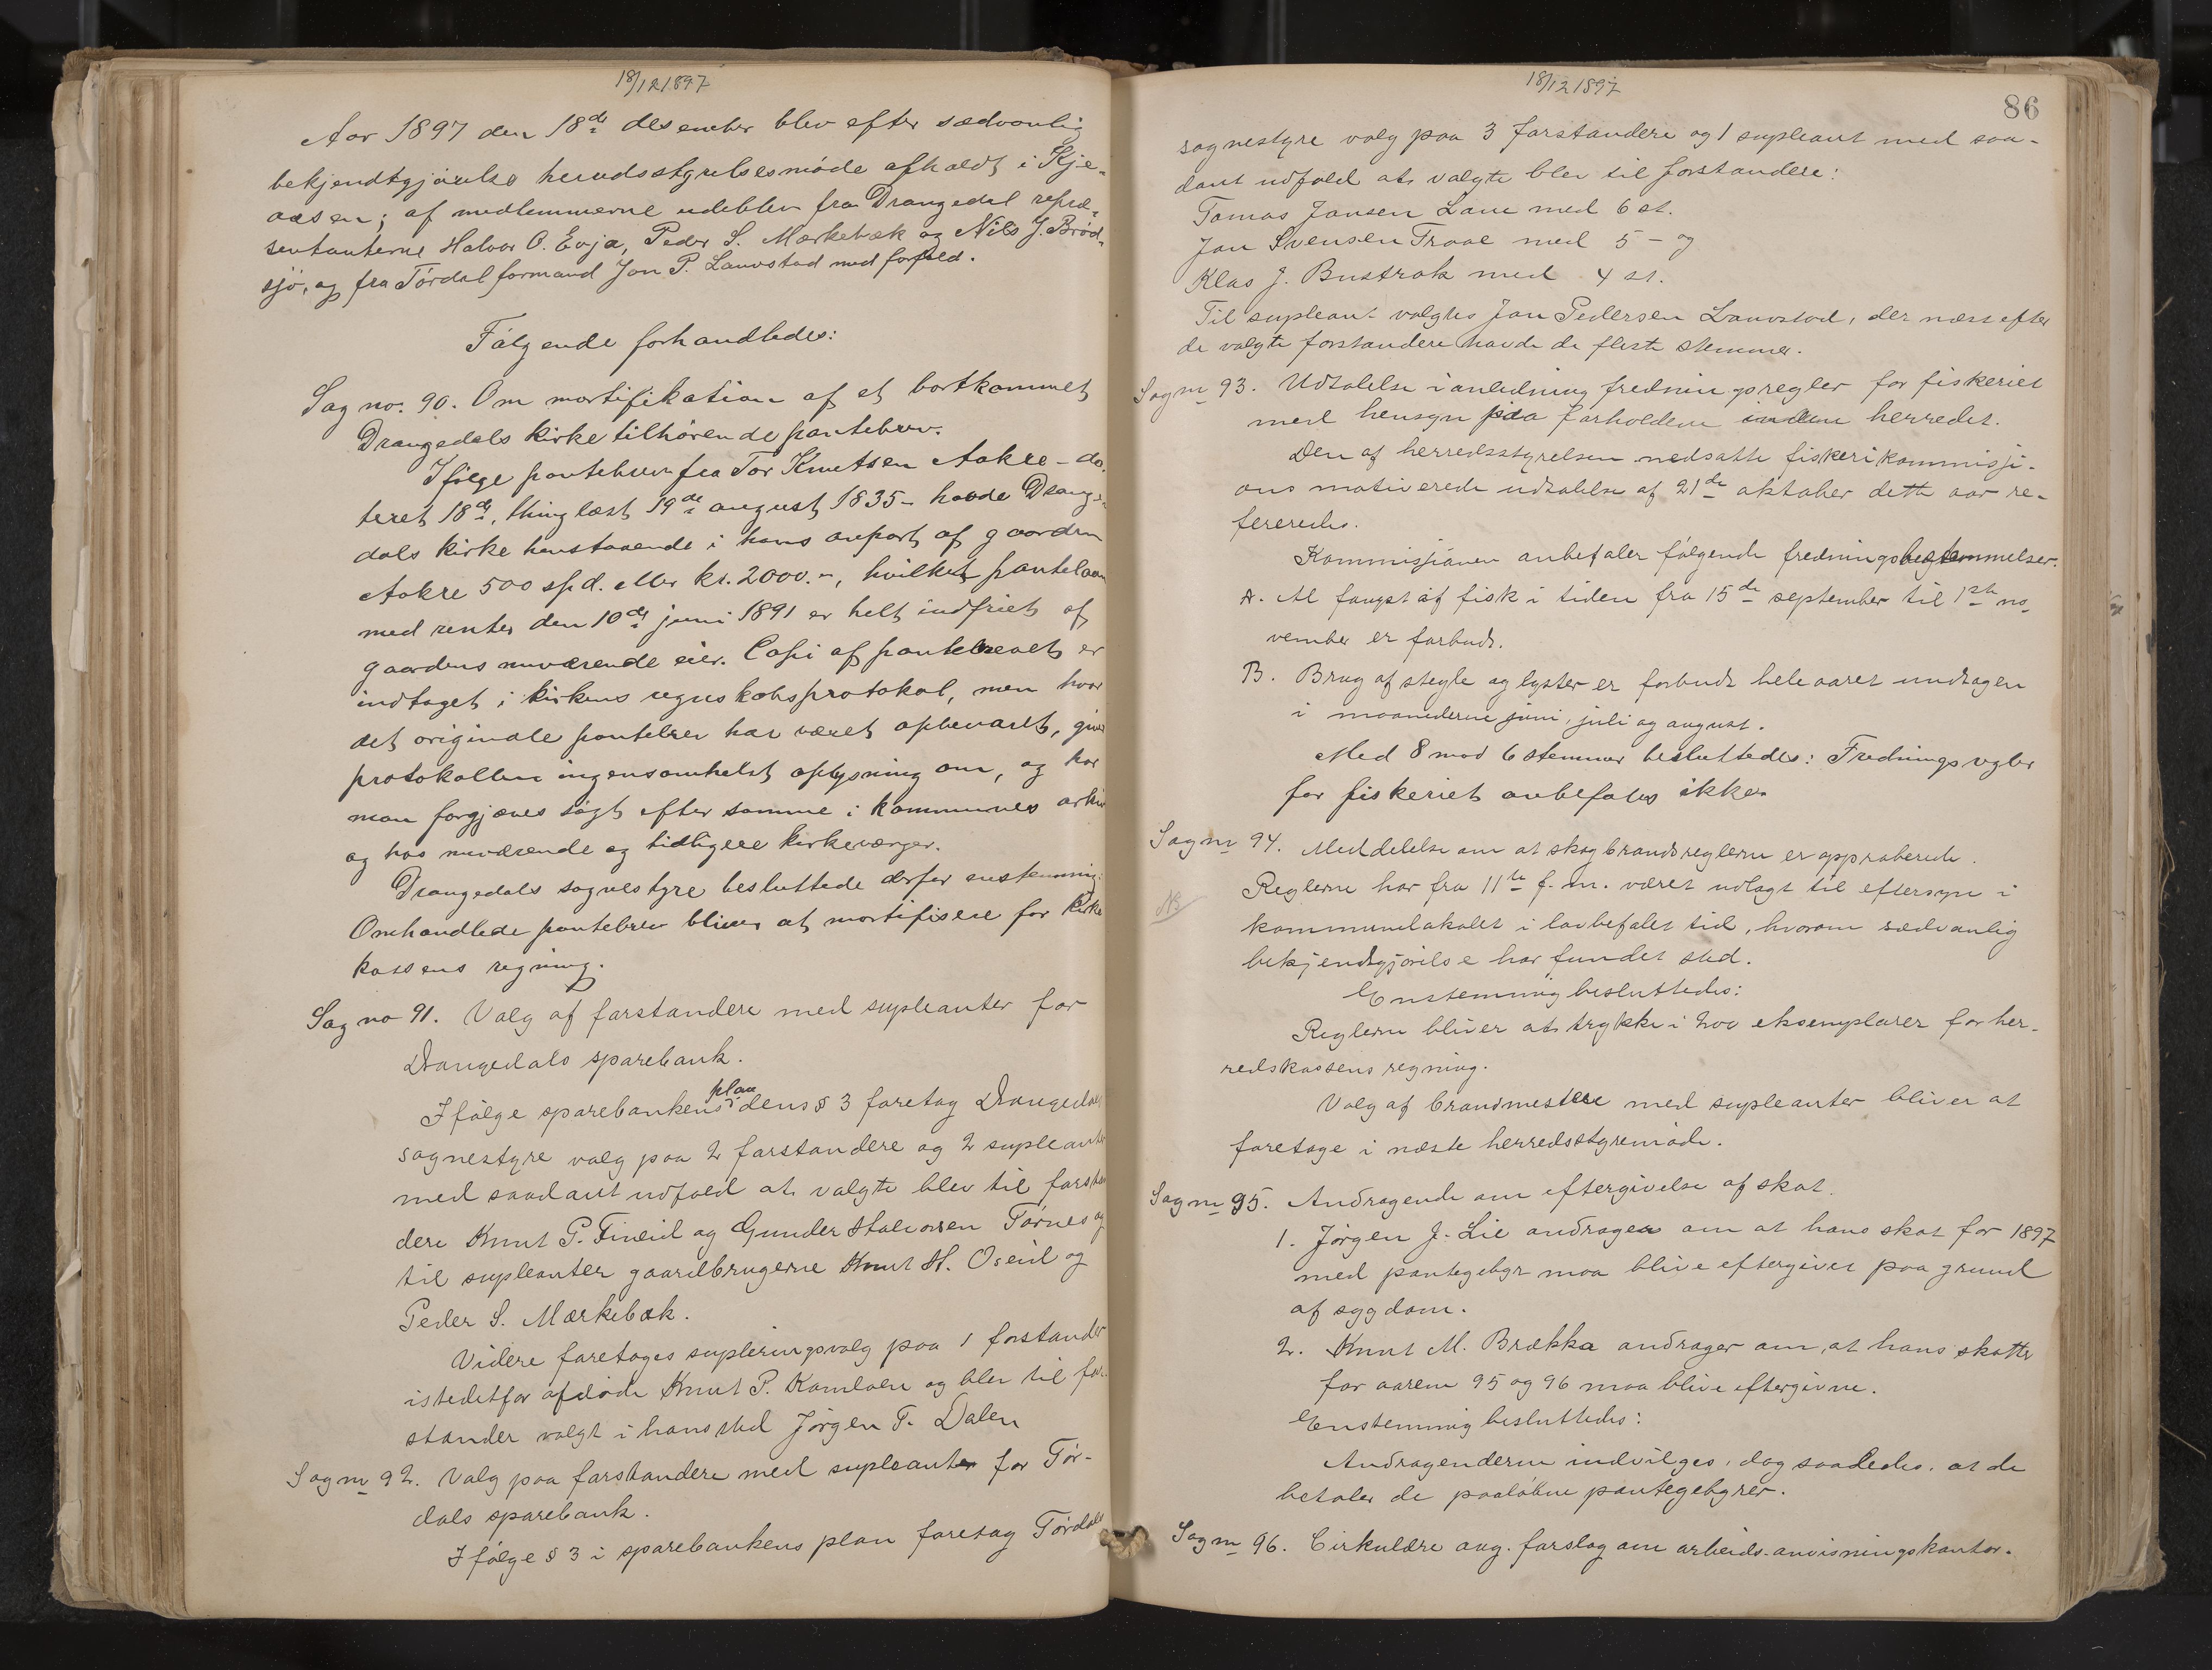 18/12 1897
Aar 1897 den 18de desember blev efter sædvanlig
bekjendtgjørelse herredsstyrelsesmøde afholdt i Kje-
aasen; af medlemmerne udeblev fra Drangedal repræ-
sentanterne Halvor O. Evja, Peder S. Mærkebæk og Nils J. Brød-
sjø, og fra Tørdal formand Jon P. Lauvstad med forfald.
Følgende forhandledes:
Sag no. 90. Om mortifikation af et bortkommet
Drangedals kirke tilhørende pantebrev.
Ifølge pantebrev fra Tor Knutsen Aakre - da-
teret 18de, thinglæst 19de august 1835 - havde Drange-
dals kirke henstaaende i hans anpart af gaarden
Aakre 500 spd. eller kr. 2000.-, hvilket pantelaan
med renter den 10de juni 1891 er helt indfriet af
gaardens nuværende eier. Copi af pantebrevet er
indtaget i kirkens regnskabsprotokol, men hvor
det originale pantebrev har været opbevaret, giver
protokollen ingensomhelst oplysning om, og har
man forgjæves søgt efter samme i kommunes arkiv
og hos nuværende og tidligere kirkeværger.
Drangedals sognestyre besluttede derfor enstemmig:
Omhandlede pantebrev bliver at mortifisere for kirke
kassens regning.
Sag no 91. Valg af forstandere med supleanter for
Drangedals sparebank.
plan
Ifølge sparebankens dens § 3 foretog Drangedals
sognestyre valg paa 2 forstandere og 2 supleanter
med saadant udfald at valgte blev til forstan
dere Knut P. Fineid og Gunder Halvorsen Tørnes og
til supleanter gaardbrugerne Knut H. Oseid og
Peder S. Mærkebæk.
Videre foretages supleringsvalg paa 1 forstander
istedetfor afdøde Knut P. Kamlaen og blev til for-
stander valgt i hans sted Jørgen T. Dalen
Sag no 92. Valg paa forstandere med supleanter for Tør-
dals sparebank.
Ifølge § 3 i sparebankens plan foretog Tørdals
18/12 1897
86
sognestyre valg paa 3 forstandere og 1 supleant med saa-
dant udfald at valgte blev til forstandere:
Tomas Jansen Laue med 6 st.
Jon Svensen Traae med 5 - og
Klas J. Bustrak med 4 st.
Til supleant valgtes Jon Pedersen Lauvstad, der næst efter
de valgte forstandere havde de fleste stemmer.
Sag no 93. Udtalelse i anledning fredningsregler for fiskeriet
med hensyn paa forholdene inden herredet.
Den af herredsstyrelsen nedsatte fiskerikommisji-
ons motiverede udtalelse af 21de oktober dette aar re-
fereredes.
Kommisjionen anbefaler følgende fredningsbestemmelser:
A. Al fangst af fisk i tiden fra 15de september til 1ste no-
vember er forbudt.
B. Brug af stegle og lyster er forbudt hele aaret undtagen
i maanederne juni, juli og august.
Med 8 mod 6 stemmer besluttedes: Fredningsregler
for fiskeriet anbefales ikke.
Sag no 94. Meddelelse om at skogbrandsreglerne er approberede.
NB
Reglerne har fra 11te f. m. været udlagt til eftersyn i
kommunelokalet i lovbefalet tid, hvorom sædvanlig
bekjendtgjørelse har fundet sted.
Enstemmig besluttedes:
Reglerne bliver at trykke i 200 eksemplarer for her-
redskassens regning.
Valg af brandmestere med supleanter bliver at
foretage i næste herredsstyremøde.
Sag no 95. Andragende om eftergivelse af skat.
1. Jørgen J. Lie andrager om at hans skat for 1897
med pantegebyr maa blive eftergivet paa grund
af sygdom.
2. Knut M. Brækka andrager om, at hans skatter
for aarene 95 og 96 maa blive eftergivne.
Enstemmig besluttedes:
Andragenderne indvilges, dog saaledes, at de
betaler de paaløbne pantegebyrer.
Sag no 96. Cirkulære ang. forslag om arbeids-anvisningskontor.